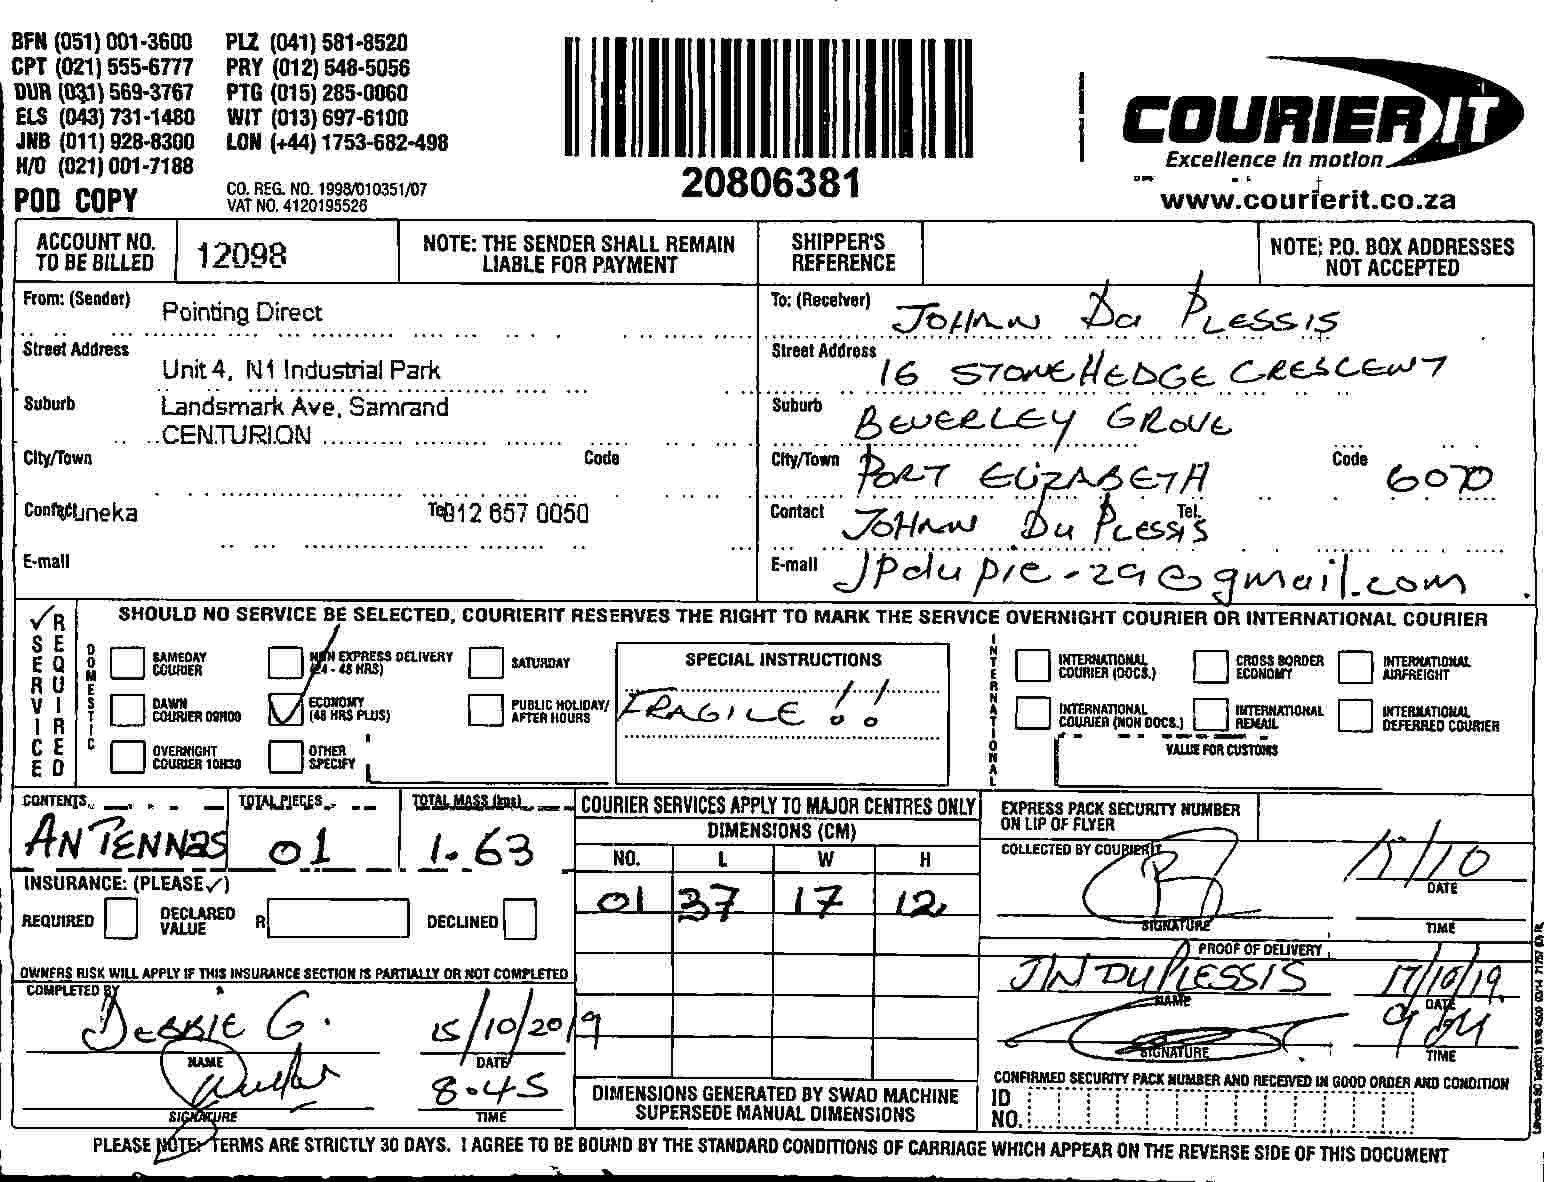 BFN (051) 001-3600 PLZ (041) 581-8520
CPT (021) 555-6777 PRY (012) 548-5056
DUR (031) 569-3767 PTG (015) 285-0060
ELS (043) 731-1480 WIT (013) 697-6100
JNB (011) 928-8300 LON (+44) 1753-682-498
H/O (021) 001-7188
POD COPY
CO. REG. NO. 1998/010351/07
VAT NO. 4120195526
20806381
COURIER IT
Excellence in motion
www.courierit.co.za
ACCOUNT NO. TO BE BILLED 12098
NOTE: THE SENDER SHALL REMAIN LIABLE FOR PAYMENT
SHIPPER'S REFERENCE
NOTE: P.O. BOX ADDRESSES NOT ACCEPTED
From: (Sender) Pointing Direct
Street Address Unit 4, N1 Industrial Park
Suburb Landsmark Ave, Samrand
CENTURION
City/Town Code
Contact uneka Tel 012 657 0050
E-mail
To: (Receiver) JOHAN Du PLESSIS
Street Address 16 STONEHEDGE CRESCENT
Suburb BEVERLEY GROVE
City/Town PORT ELIZABETH Code 6070
Contact JOHAN Du PLESSIS Tel.
E-mail jpdupie-29@gmail.com
SERVICE REQUIRED
SHOULD NO SERVICE BE SELECTED, COURIERIT RESERVES THE RIGHT TO MARK THE SERVICE OVERNIGHT COURIER OR INTERNATIONAL COURIER
DOMESTIC
SAMEDAY COURIER
NON EXPRESS DELIVERY (24 - 48 HRS)
SATURDAY
DAWN COURIER 09H00
ECONOMY (48 HRS PLUS)
PUBLIC HOLIDAY/ AFTER HOURS
OVERNIGHT COURIER 10H30
OTHER SPECIFY
SPECIAL INSTRUCTIONS
FRAGILE !!
INTERNATIONAL
INTERNATIONAL COURIER (DOCS.)
CROSS BORDER ECONOMY
INTERNATIONAL AIRFREIGHT
INTERNATIONAL COURIER (NON DOCS.)
INTERNATIONAL REMAIL
INTERNATIONAL DEFERRED COURIER
VALUE FOR CUSTOMS
CONTENTS ANTENNAS
TOTAL PIECES 01
TOTAL MASS (kgs) 1.63
INSURANCE: (PLEASE ✓)
REQUIRED DECLARED VALUE R DECLINED
OWNERS RISK WILL APPLY IF THIS INSURANCE SECTION IS PARTIALLY OR NOT COMPLETED
COMPLETED BY
DEBBIE G. 15/10/2019
NAME DATE
8.45
SIGNATURE TIME
COURIER SERVICES APPLY TO MAJOR CENTRES ONLY
DIMENSIONS (CM)
NO. L W H
01 37 17 12
DIMENSIONS GENERATED BY SWAD MACHINE SUPERSEDE MANUAL DIMENSIONS
EXPRESS PACK SECURITY NUMBER ON LIP OF FLYER
COLLECTED BY COURIERIT
15/10
DATE
SIGNATURE TIME
PROOF OF DELIVERY
J N DU PLESSIS 17/10/19
NAME DATE
SIGNATURE TIME
CONFIRMED SECURITY PACK NUMBER AND RECEIVED IN GOOD ORDER AND CONDITION
ID NO.
PLEASE NOTE: TERMS ARE STRICTLY 30 DAYS. I AGREE TO BE BOUND BY THE STANDARD CONDITIONS OF CARRIAGE WHICH APPEAR ON THE REVERSE SIDE OF THIS DOCUMENT